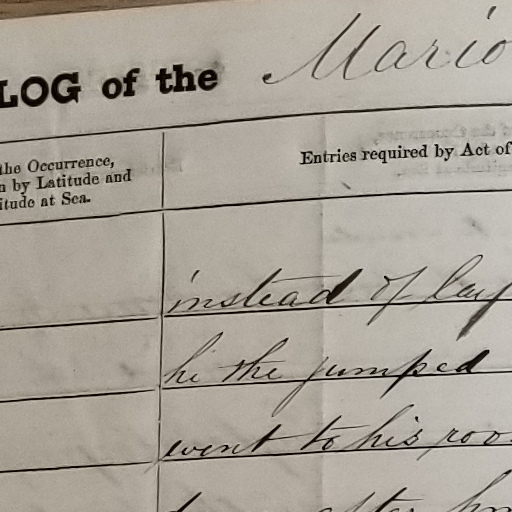 LOG of the Mario
the Occurrence,
n by Latitude and
itude at Sea.
Entries required by Act of
instead of lay
he the jumped
went to his roo
after